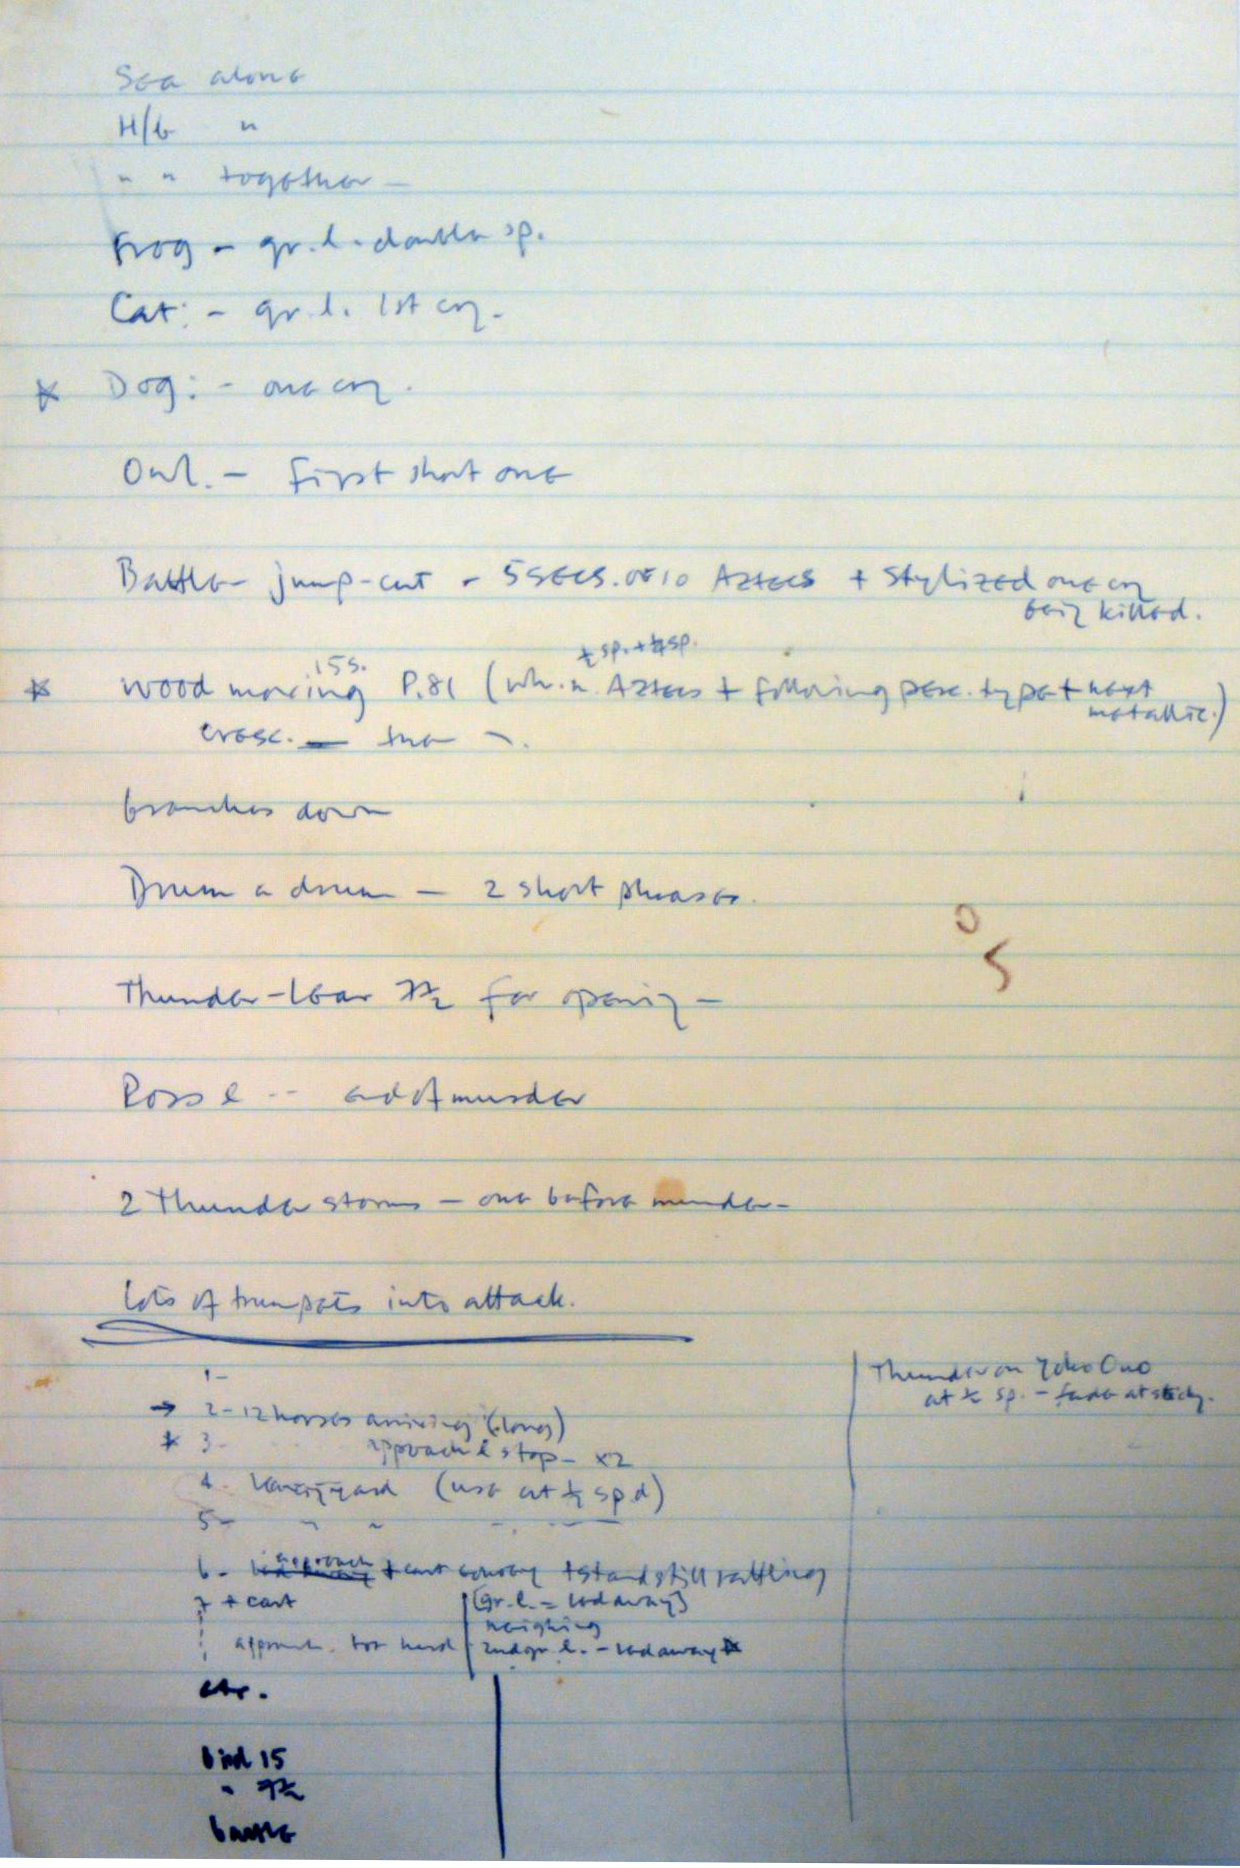 Sea alone
H/b "
" " together -
Frog - gr. l. - double sp.
Cat: - gr. l. 1st cry.
Dog: - one cry.
Owl. - first short one
Battle - jump-cut - 5 SECS. OF 10 AZTECS + stylized one cry
being killed.
15s.
½ sp. + ¼ sp.
wood moving P.81 (wh. n. Aztecs + following perc. type + next
metallic.)
cresc. — the
branches down
Drum a drum - 2 short phrases.
Thunder - Lear 7½ for opening -
Ross l -- end of murder
2 Thunder storms - one before murder -
lots of trumpets into attack.
1 -
→ 2 - 12 horses arriving (long)
3 - approach & stop - x2
4 - (use at ½ spd)
5 - " "
6 - approach + cart + stand still rattling
7 + cart
(gr. l. = led away)
neighing
approach. hard
2nd gr. l. - led away
etc.
bird 15
" 7½
battle
Thunder on Yoko Ono
at ½ sp. - fade at